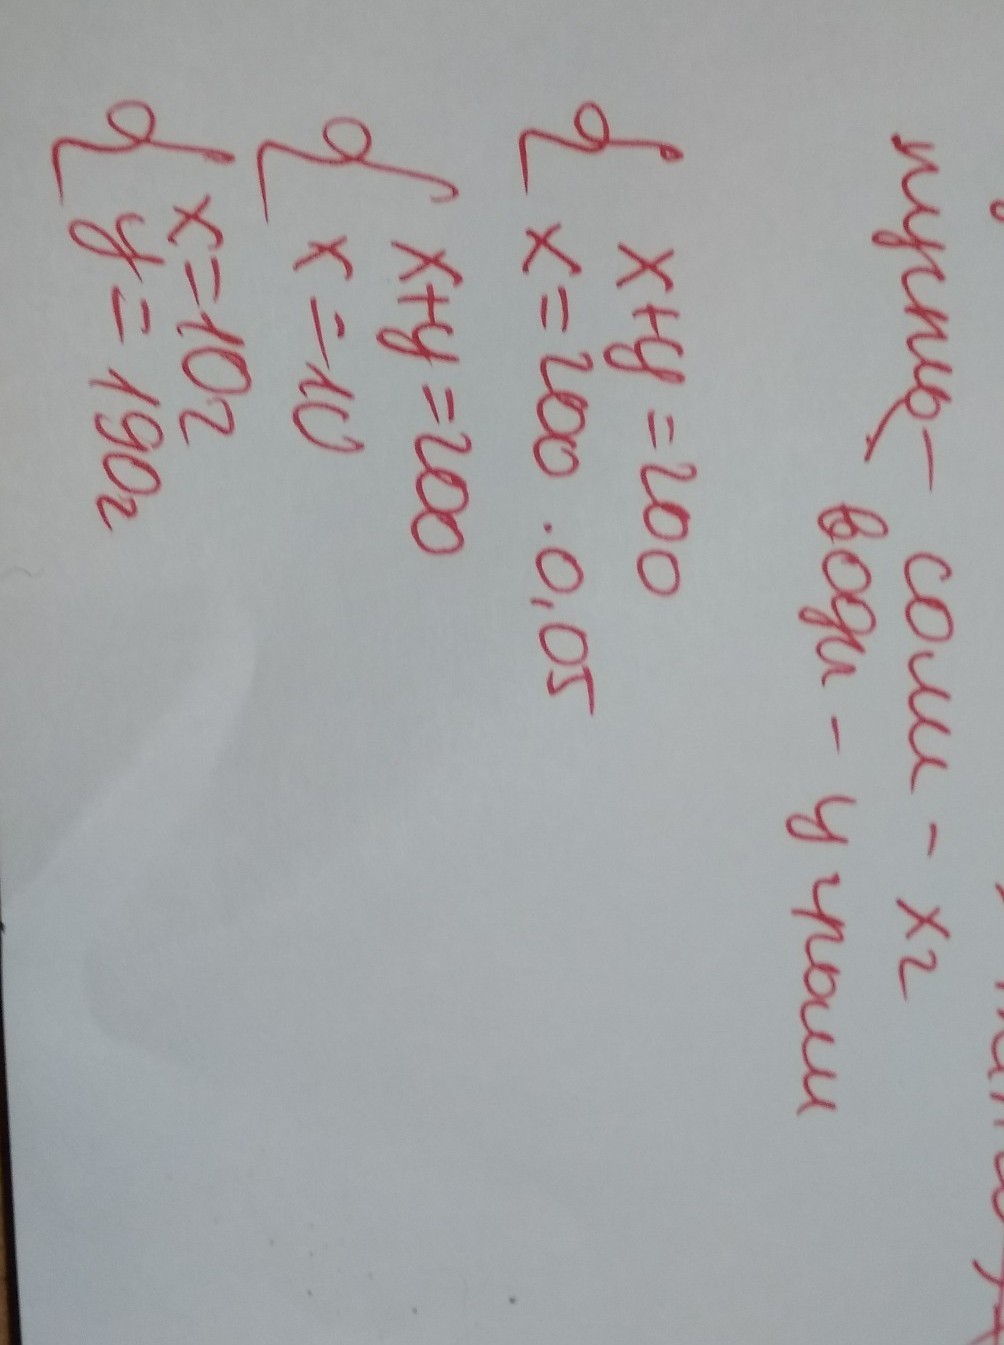 пусть - соли - x г
воды - y грамм
x+y=200
x=200 . 0,05
x+y=200
x=10
x=10г
y=190г